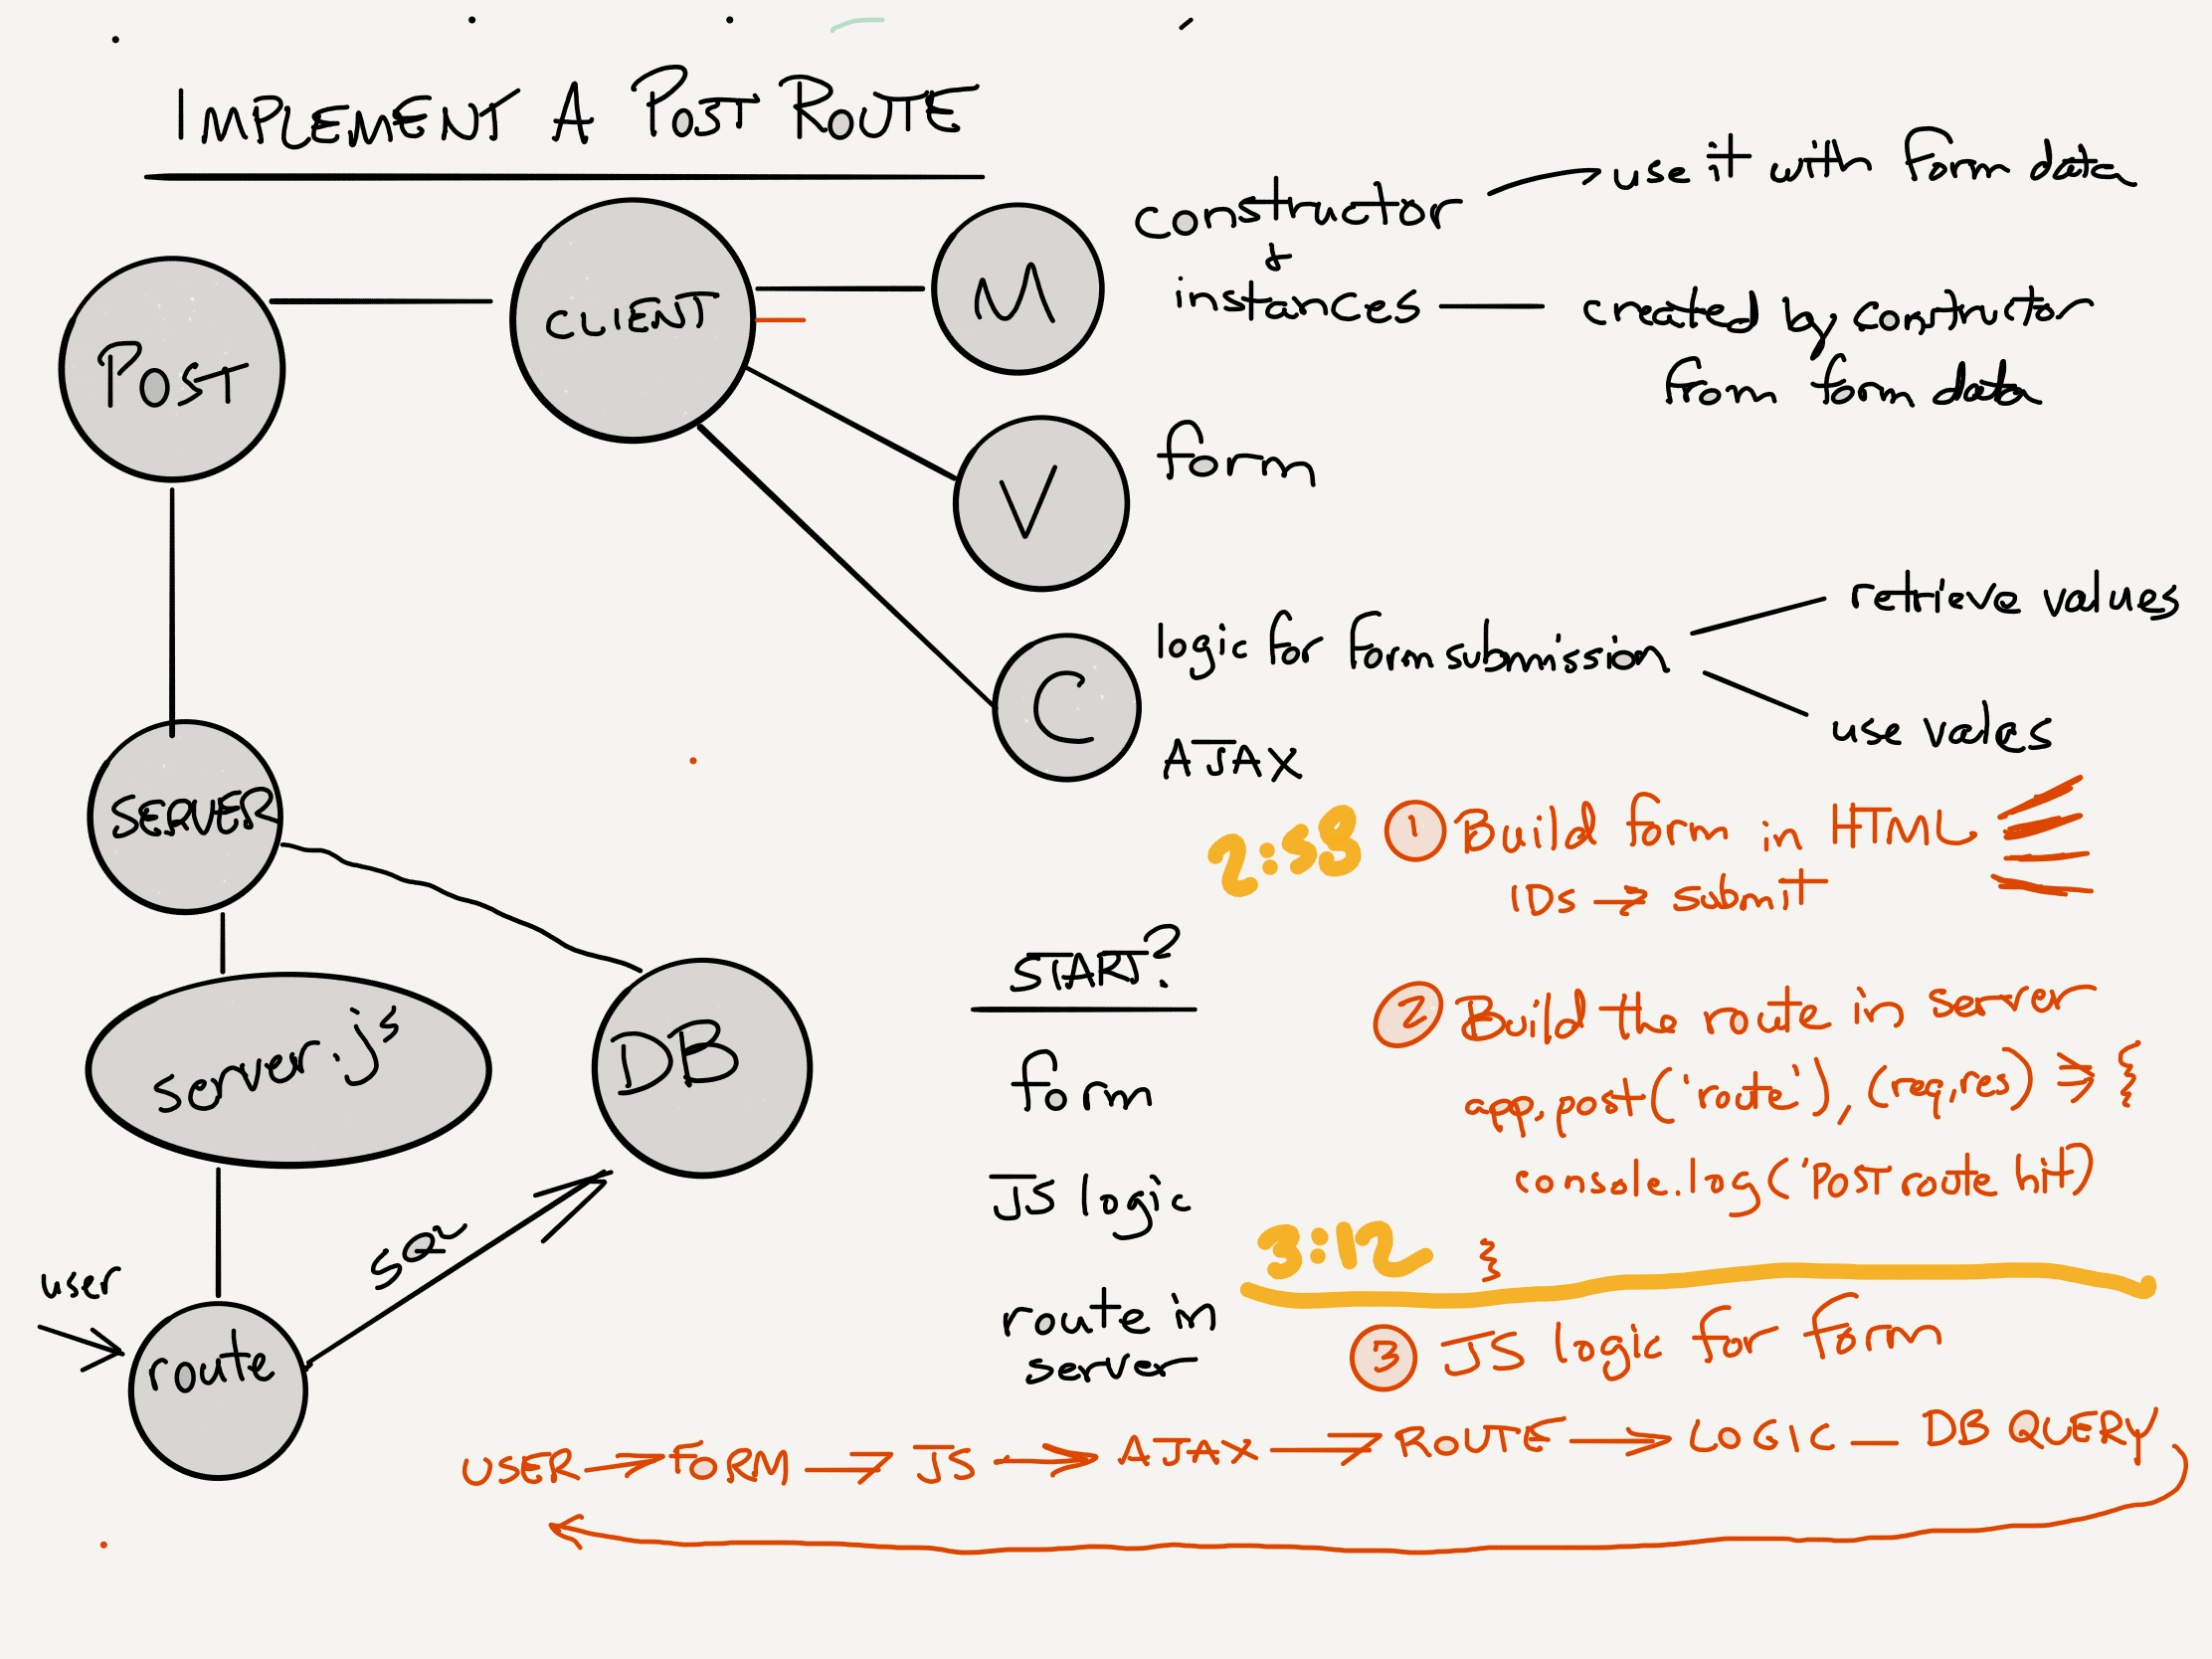 IMPLEMENT A POST ROUTE
POST
CLIENT
M
constructor → use it with form data
&
instances — created by constructor
from form data
V
form
C
logic for form submission
retrieve values
use values
AJAX
SERVER
server.js
DB
SQL
user
route
START?
form
JS logic
route in
server
2:33
1 Build form in HTML
IDs → submit
2 Build the route in server
app.post('route'), (req,res) => {
console.log('POST route hit)
}
3:12
3 JS logic for form
USER → FORM → JS → AJAX → ROUTE → LOGIC — DB QUERY